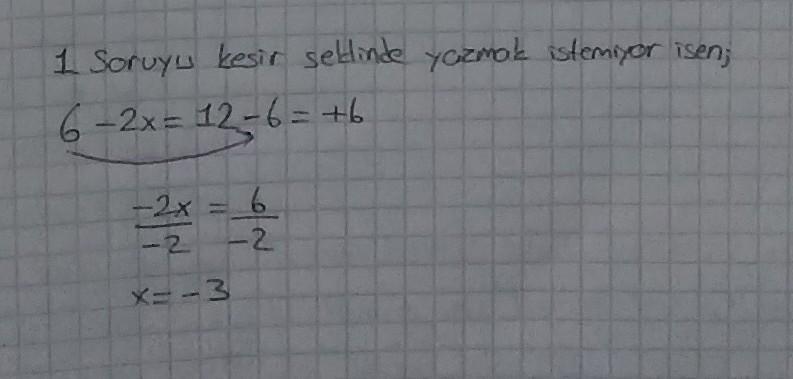 1 Soruyu kesir seklinde yazmak istemiyor isen;
6 -2x = 12 -6 = +6
-2x/-2 = 6/-2
x = -3